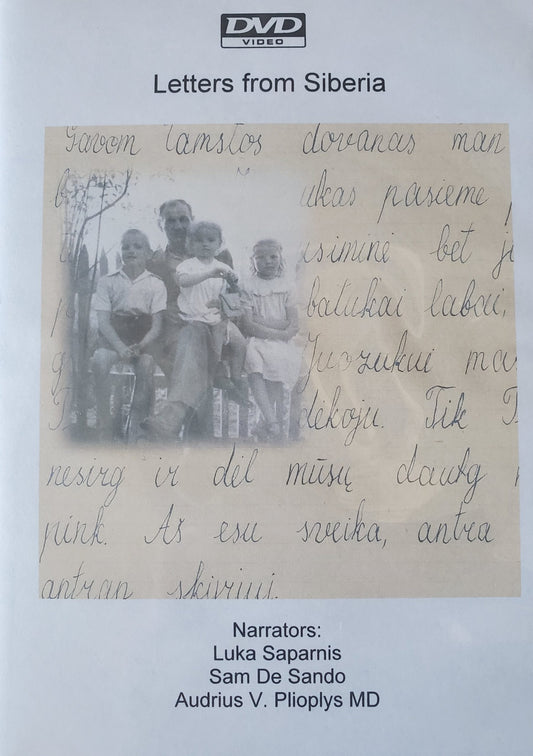 DVD
VIDEO
Letters from Siberia
Gavom Tamstos dovanas man
ukas pasiėmė
usiminė bet ji
batukai labai,
Juozukui ma
dėkoju. Tik T
nesirg ir dėl mūsų daug
pink. Aš esu sveika, antra
antran skiriui.
Narrators:
Luka Saparnis
Sam De Sando
Audrius V. Plioplys MD